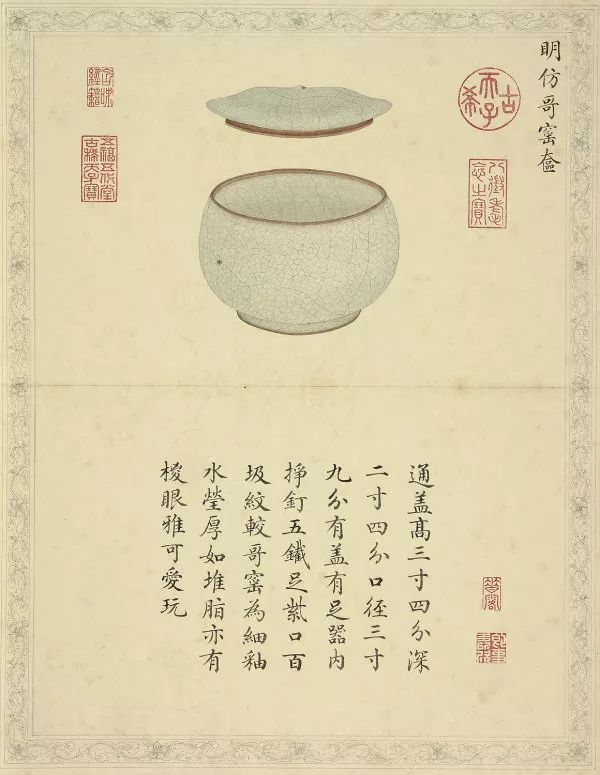 明仿哥窰奩
古希天子
八徵耄念之寶
五福五代堂古稀天子寶
通盖髙三寸四分深
二寸四分口徑三寸
九分有盖有足器内
掙釘五鐵足紫口百
圾紋較哥窰為細釉
水瑩厚如堆脂亦有
椶眼雅可愛玩